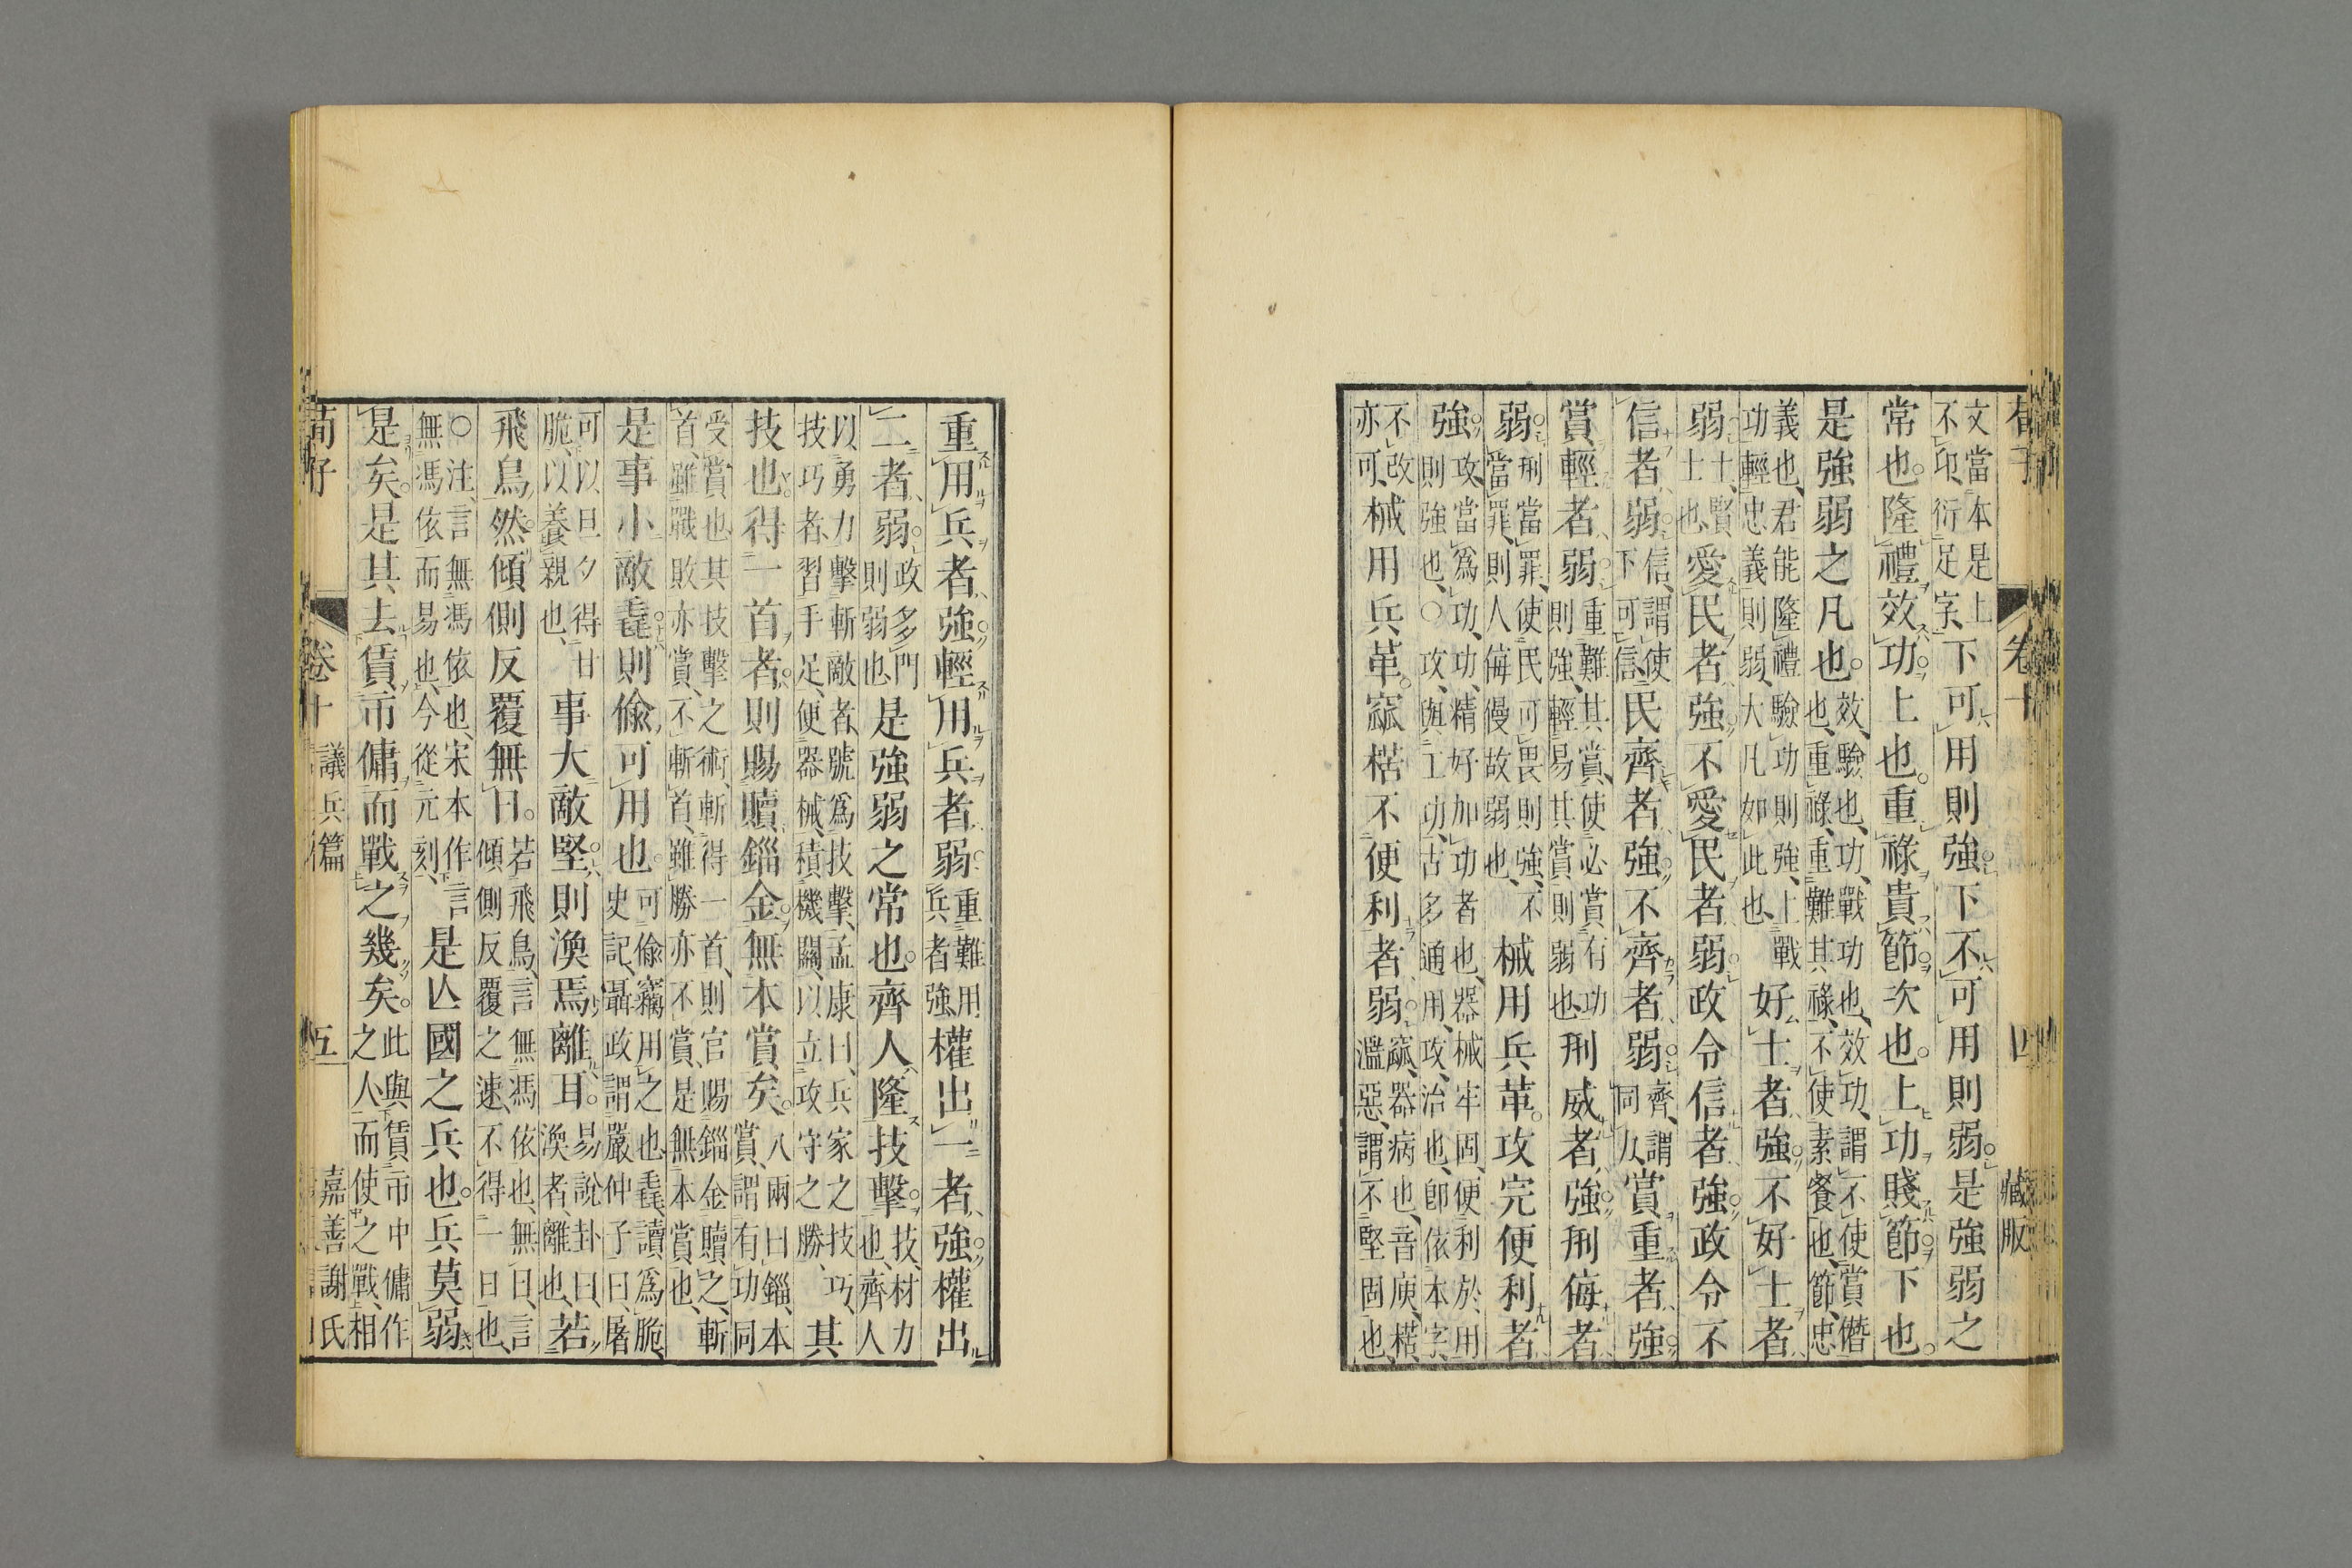 荀子 卷十 四 藏版
文當本是上不卬、衍足字、下可用則強下不可用則弱是強弱之
常也。隆禮效功上也。重祿貴節次也。上功賤節下也。
是強弱之凡也。效、驗也、功、戰功也、效功、謂不使賞僭也、重祿、重難其祿、不使素餐也、節、忠
義也、君能隆禮驗功則強、上戰功輕忠義則弱、大凡如此也、好士者強不好士者
弱士、賢士也、愛民者強不愛民者弱政令信者強政令不
信者弱信、謂使下可信、民齊者強不齊者弱齊、謂同力、賞重者強
賞輕者弱重難其賞、使必賞有功則強、輕易其賞則弱也、刑威者強刑侮者
弱刑當罪、使民可畏則強、不當罪、則人侮慢故弱也、械用兵革。攻完便利者
強。攻、當爲功、功、精好加功者也、器械牢固、便利於用則強也、○攻、與工功、古多通用、攻、治也、卽依本字、
不改亦可、械用兵革。窳楛不便利者弱。窳、器病也、音庾、楛、濫惡、謂不堅固也、
重用兵者強輕用兵者弱重難用兵者強權出一者強權出
二者弱政多門則弱也是強弱之常也。齊人隆技擊技、材力也、齊人
以勇力擊斬敵者、號爲技擊、孟康曰、兵家之技巧、技巧者、習手足、便器械、積機關、以立攻守之勝、其
技也得一首者則賜贖錙金無本賞矣。八兩曰錙、本賞、謂有功同
受賞也、其技擊之術、斬得一首、則官賜錙金贖之、斬首、雖戰敗亦賞、不斬首、雖勝亦不賞、是無本賞也、
是事小敵毳則偷可用也。可偷竊用之也、毳、讀爲脆、史記、聶政謂嚴仲子曰、屠
可以旦夕得甘脆、以養親也、事大敵堅則渙焉離耳。易說卦曰、渙者、離也、若
飛鳥然傾側反覆無日。若飛鳥、言無馮依也、無日、言傾側反覆之速、不得一日也、
○注、言無馮依也、宋本作言無馮依而易也、今從元刻、是亾國之兵也。兵莫弱
是矣。是其去賃市傭而戰之幾矣。此與賃市中傭作之人而使之戰、相
荀子 卷十 議兵篇 五 嘉善謝氏